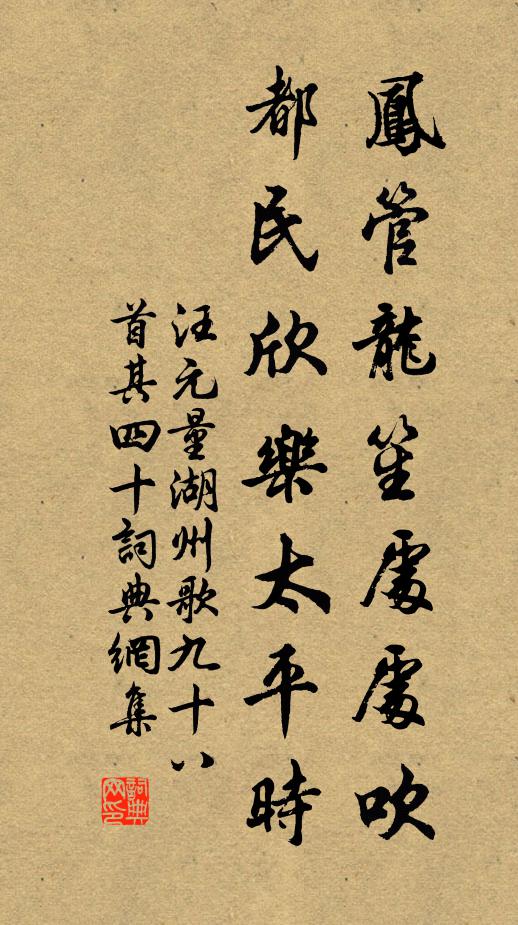 鳳管龍笙處處吹
都民欣樂太平時
汪元量湖州歌九十八
首其四十詞典網集
詞典
网印